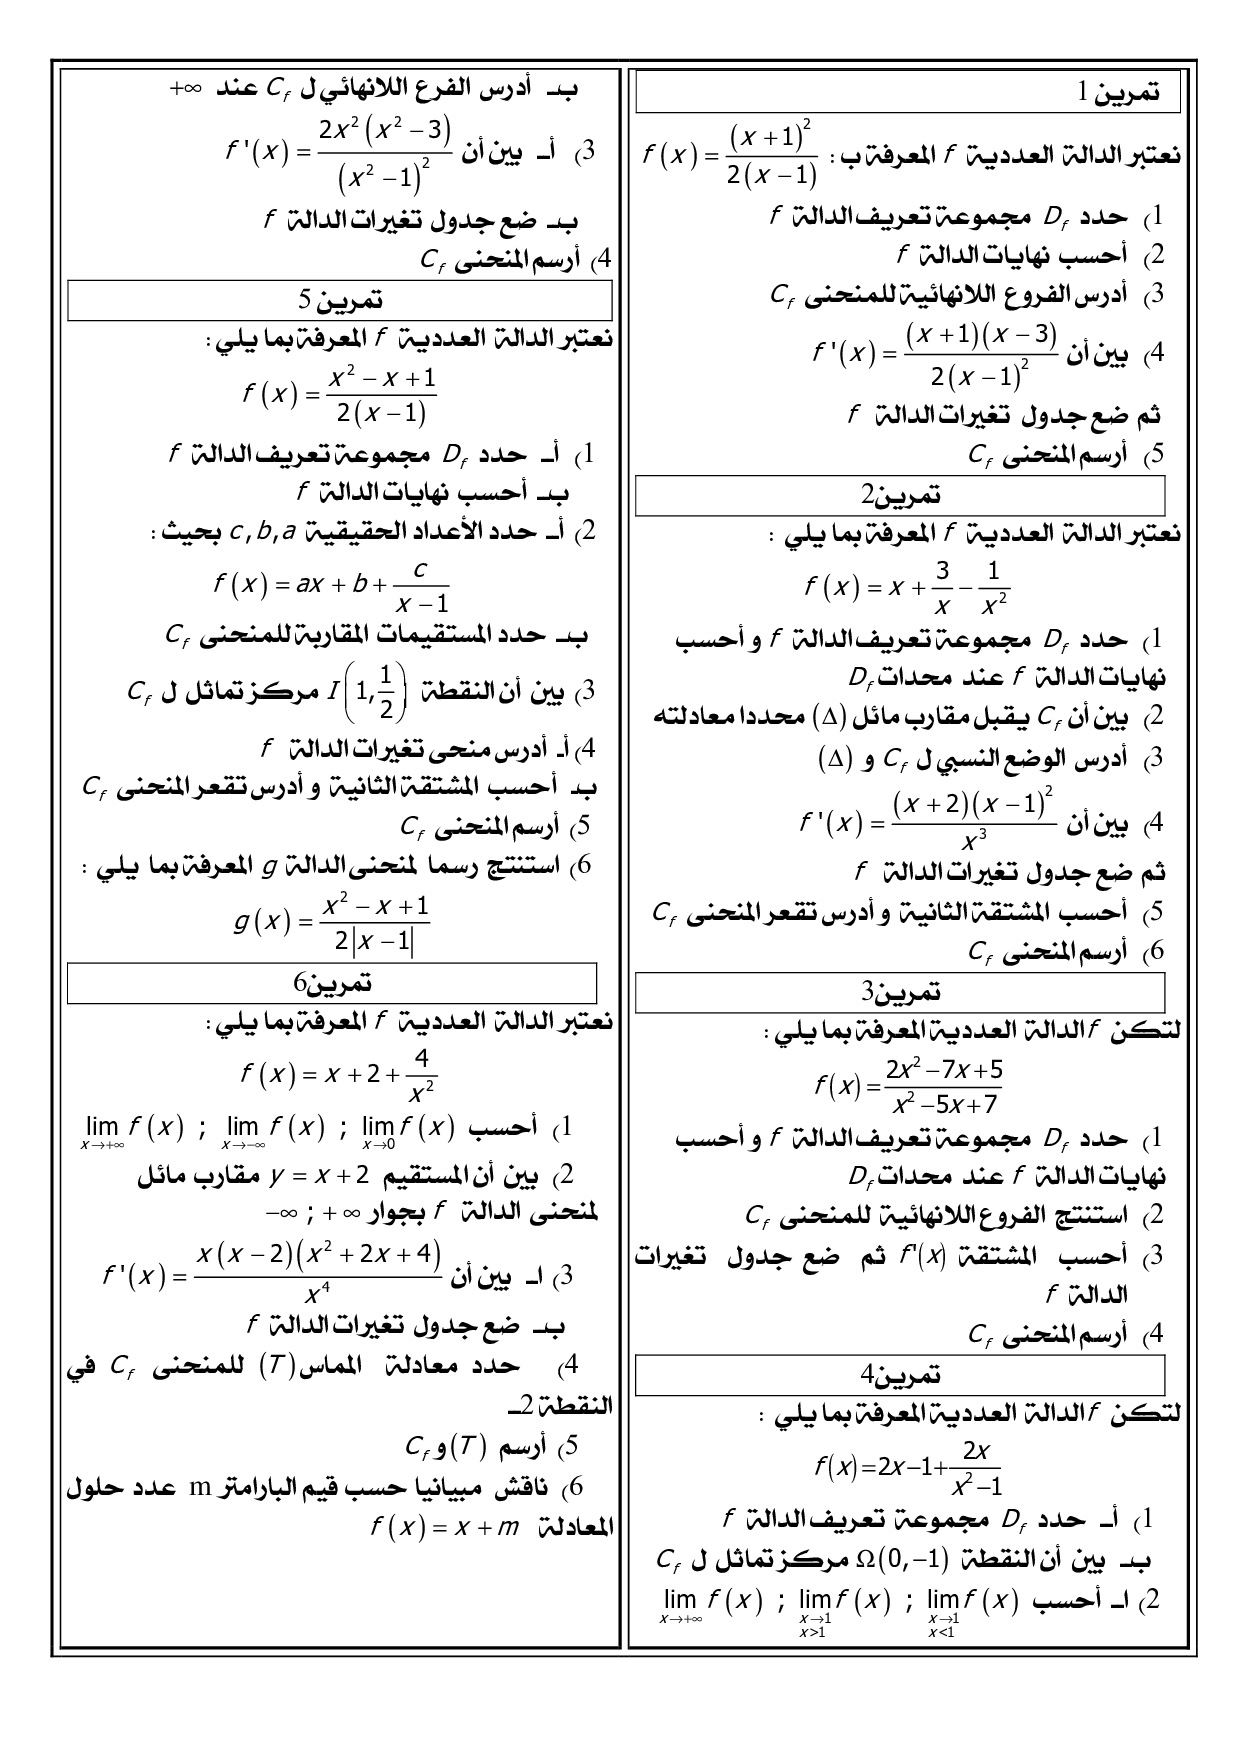 تمرين 1
نعتبر الدالة العددية f المعرفة ب : f(x) = (x+1)² / 2(x−1)
1) حدد D_f مجموعة تعريف الدالة f
2) أحسب نهايات الدالة f
3) أدرس الفروع اللانهائية للمنحنى C_f
4) بين أن f'(x) = (x+1)(x−3) / 2(x−1)²
ثم ضع جدول تغيرات الدالة f
5) أرسم المنحنى C_f
تمرين2
نعتبر الدالة العددية f المعرفة بما يلي :
f(x) = x + 3/x − 1/x²
1) حدد D_f مجموعة تعريف الدالة f و أحسب
نهايات الدالة f عند محدات D_f
2) بين أن C_f يقبل مقارب مائل (Δ) محددا معادلته
3) أدرس الوضع النسبي ل C_f و (Δ)
4) بين أن f'(x) = (x+2)(x−1)² / x³
ثم ضع جدول تغيرات الدالة f
5) أحسب المشتقة الثانية و أدرس تقعر المنحنى C_f
6) أرسم المنحنى C_f
تمرين3
لتكن f الدالة العددية المعرفة بما يلي :
f(x) = (2x²−7x+5) / (x²−5x+7)
1) حدد D_f مجموعة تعريف الدالة f و أحسب
نهايات الدالة f عند محدات D_f
2) استنتج الفروع اللانهائية للمنحنى C_f
3) أحسب المشتقة f'(x) ثم ضع جدول تغيرات
الدالة f
4) أرسم المنحنى C_f
تمرين4
لتكن f الدالة العددية المعرفة بما يلي :
f(x) = 2x−1+ 2x/(x²−1)
1) أـ حدد D_f مجموعة تعريف الدالة f
بـ بين أن النقطة Ω(0,−1) مركز تماثل ل C_f
2) اـ أحسب lim_{x→1, x<1} f(x) ; lim_{x→1, x>1} f(x) ; lim_{x→+∞} f(x)
بـ أدرس الفرع اللانهائي ل C_f عند +∞
3) أـ بين أن f'(x) = 2x²(x²−3) / (x²−1)²
بـ ضع جدول تغيرات الدالة f
4) أرسم المنحنى C_f
تمرين 5
نعتبر الدالة العددية f المعرفة بما يلي :
f(x) = (x²−x+1) / 2(x−1)
1) أـ حدد D_f مجموعة تعريف الدالة f
بـ أحسب نهايات الدالة f
2) أـ حدد الأعداد الحقيقية c,b,a بحيث :
f(x) = ax + b + c/(x−1)
بـ حدد المستقيمات المقاربة للمنحنى C_f
3) بين أن النقطة I(1, 1/2) مركز تماثل ل C_f
4) أـ أدرس منحى تغيرات الدالة f
بـ أحسب المشتقة الثانية و أدرس تقعر المنحنى C_f
5) أرسم المنحنى C_f
6) استنتج رسما لمنحنى الدالة g المعرفة بما يلي :
g(x) = (x²−x+1) / 2|x−1|
تمرين6
نعتبر الدالة العددية f المعرفة بما يلي :
f(x) = x + 2 + 4/x²
1) أحسب lim_{x→0} f(x) ; lim_{x→−∞} f(x) ; lim_{x→+∞} f(x)
2) بين أن المستقيم y = x + 2 مقارب مائل
لمنحنى الدالة f بجوار +∞ ; −∞
3) اـ بين أن f'(x) = x(x−2)(x²+2x+4) / x⁴
بـ ضع جدول تغيرات الدالة f
4) حدد معادلة المماس (T) للمنحنى C_f في
النقطة 2ـ
5) أرسم (T) و C_f
6) ناقش مبيانيا حسب قيم البارامتر m عدد حلول
المعادلة f(x) = x + m